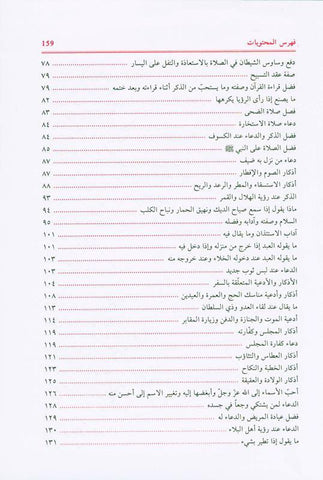 فهرس المحتويات 159
دفع وساوس الشيطان في الصلاة بالاستعاذة والتفل على اليسار ٧٨
صفة عقد التسبيح ٧٩
فضل قراءة القرآن وصفته وما يستحبّ من الذكر أثناء قراءته وبعد ختمه ٧٩
ما يصنع إذا رأى الرؤيا يكرهها ٨٢
فضل صلاة الضحى ٨٣
دعاء صلاة الاستخارة ٨٤
فضل الذكر والدعاء عند الكسوف ٨٤
فضل الصلاة على النبي ﷺ ٨٥
دعاء من نزل به ضيف ٨٧
أذكار الصوم والإفطار ٨٧
أذكار الاستسقاء والمطر والرعد والريح ٨٨
الذكر عند رؤية الهلال والقمر ٩٣
ماذا يقول إذا سمع صياح الديك ونهيق الحمار ونباح الكلب ٩٤
السلام وصفته وآدابه وفضله ٩٥
آداب الاستئذان وما يقال فيه ١٠١
ما يقوله العبد إذا خرج من منزله وإذا دخل فيه ١٠١
ما يقوله العبد عند دخوله الخلاء وعند خروجه منه ١٠٣
الدعاء عند لبس ثوب جديد ١٠٣
الأذكار والأدعية المتعلّقة بالسفر
أذكار وأدعية مناسك الحج والعمرة والعيدين
ما يقال عند لقاء العدو وذي السلطان ١١٣
أدعية الموت والجنازة والدفن وزيارة المقابر ١١٤
أذكار المجلس وكفّارته ١١٩
دعاء كفارة المجلس ١١٩
أذكار العطاس والتثاؤب ١٢١
أذكار الخطبة والنكاح ١٢٣
أذكار الولادة والعقيقة ١٢٥
أحبّ الأسماء إلى الله عزّ وجلّ وأبغضها إليه وتغيير الاسم إلى أحسن منه ١٢٦
الدعاء لمن يشتكي وجعاً في جسده ١٢٨
فضل عيادة المريض والدعاء له
الدعاء عند رؤية أهل البلاء ١٣٠
ما يقول إذا تطير بشيء ١٣١